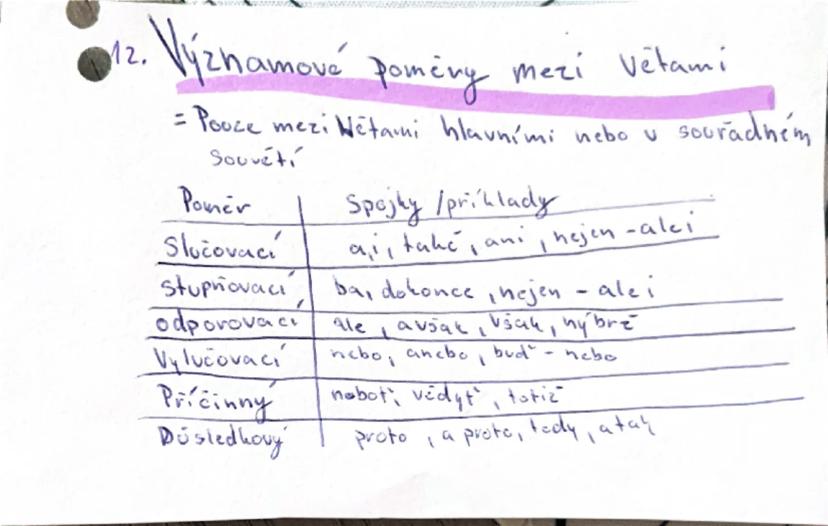 12. Významové poměry mezi větami
= Pouze mezi větami hlavními nebo v souřadném
souvětí
Poměr spojky /příklady
Slučovací a, i, také, ani, nejen - ale i
stupňovací ba, dokonce, nejen - ale i
odporovací ale, avšak, však, nýbrž
Vylučovací nebo, anebo, buď - nebo
Příčinný neboť, vždyť, totiž
Důsledkový proto, a proto, tedy, a tak